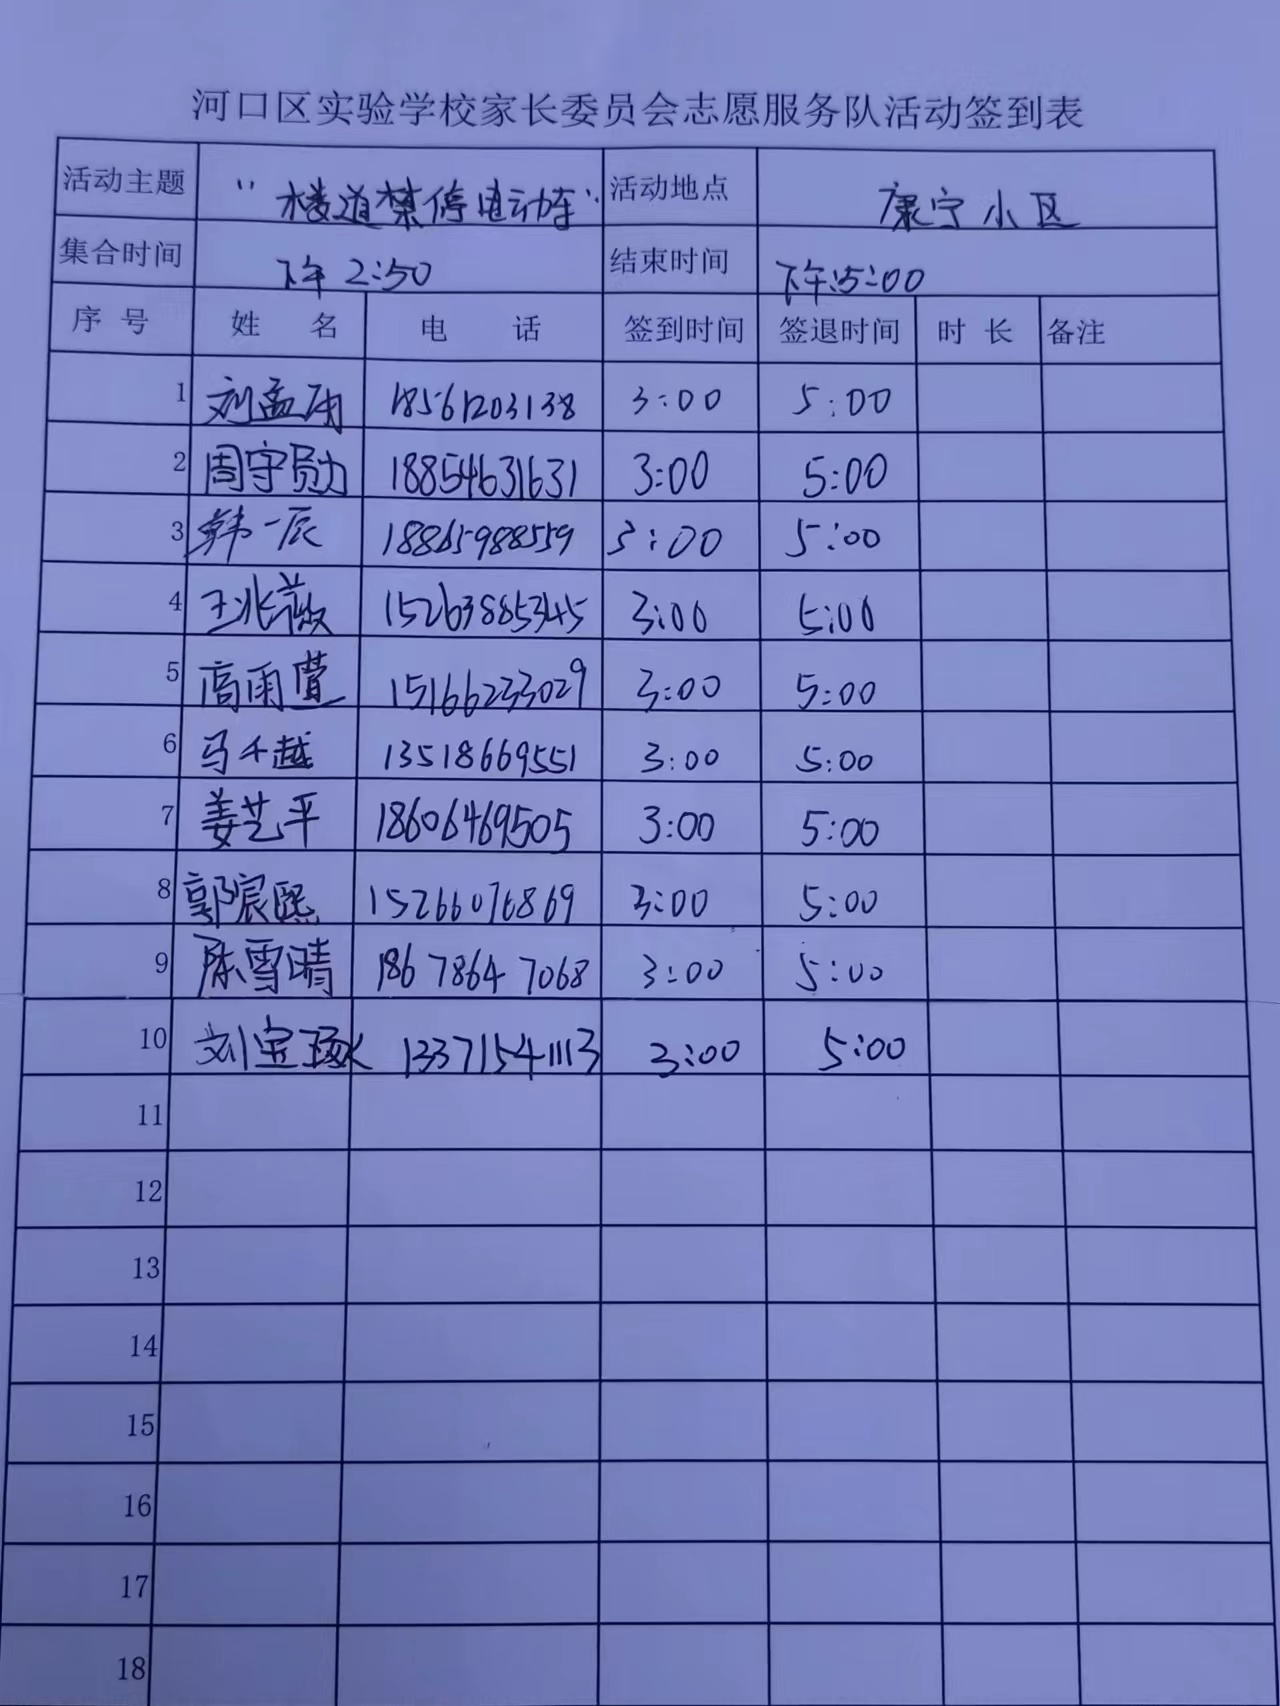 河口区实验学校家长委员会志愿服务队活动签到表
活动主题 “楼道禁停电动车” 活动地点 康宁小区
集合时间 下午2:50 结束时间 下午:5:00
序号 姓名 电话 签到时间 签退时间 时长 备注
1 刘孟雨 18561203138 3:00 5:00
2 周宇勋 18854631631 3:00 5:00
3 韩一辰 18865988559 3:00 5:00
4 王兆薇 15263885345 3:00 5:00
5 高雨萱 15166233029 3:00 5:00
6 马千越 13518669551 3:00 5:00
7 姜艺平 18606469505 3:00 5:00
8 郭宸熙 15266076869 3:00 5:00
9 陈雪晴 186 7864 7068 3:00 5:00
10 刘宝 13371541113 3:00 5:00
11
12
13
14
15
16
17
18